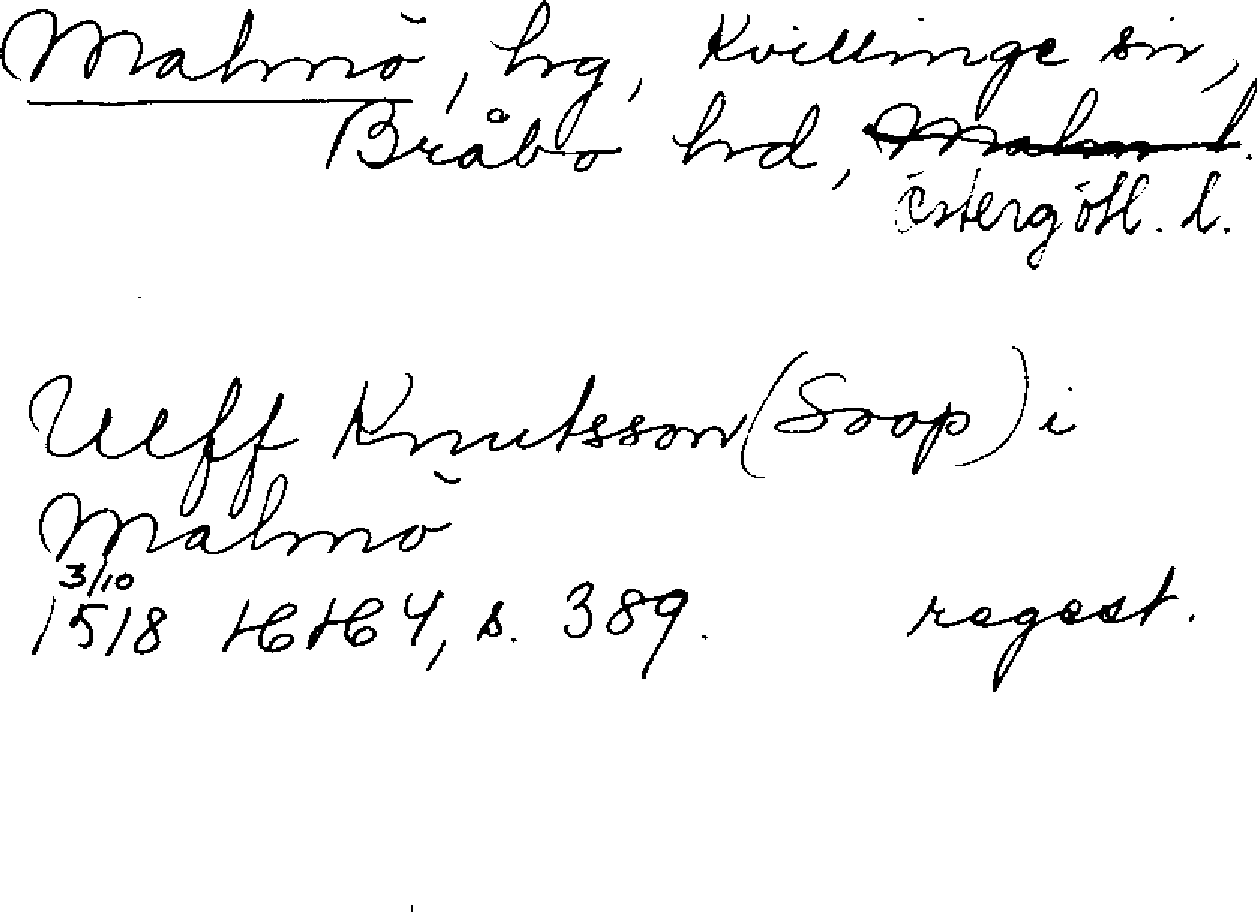 Malmö, hrg, Kvillinge sn,
Bråbo hrd, Malm l.
Östergötl. l.
Ulff Knutsson (Soop) i
Malmö
3/10
1518 HH 4, s. 389. regest.